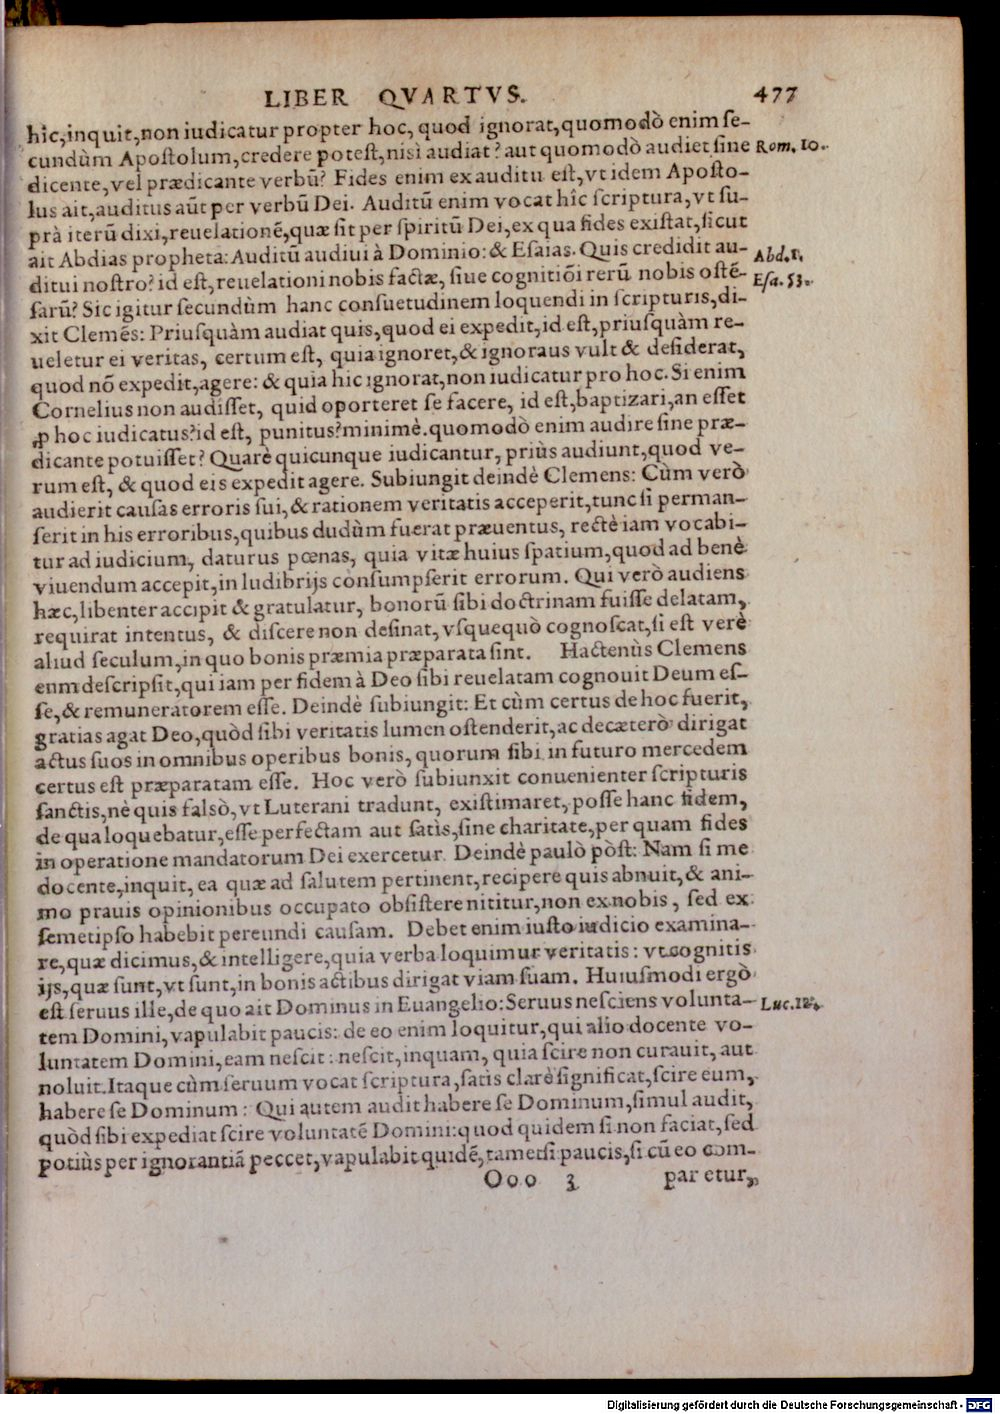 LIBER QVARTVS. 477
hîc, inquit, non iudicatur propter hoc, quod ignorat, quomodò enim se-
cundùm Apostolum, credere potest, nisi audiat? aut quomodò audiet sine Rom. 10.
dicente, vel prædicante verbũ? Fides enim ex auditu est, vt idem Aposto-
lus ait, auditus aũt per verbũ Dei. Auditũ enim vocat hîc scriptura, vt su-
prà iterũ dixi, reuelationẽ, quæ sit per spiritũ Dei, ex qua fides existat, sicut
ait Abdias propheta: Auditũ audiui à Domino: & Esaias. Quis credidit au- Abd. 1.
ditui nostro? id est, reuelationi nobis factæ, siue cognitiõi rerũ nobis ostẽ- Esa. 53.
sarũ? Sic igitur secundùm hanc consuetudinem loquendi in scripturis, di-
xit Clemẽs: Priusquàm audiat quis, quod ei expedit, id est, priusquàm re-
ueletur ei veritas, certum est, quia ignoret, & ignoraus vult & desiderat,
quod nõ expedit, agere: & quia hic ignorat, non iudicatur pro hoc. Si enim
Cornelius non audisset, quid oporteret se facere, id est, baptizari, an esset
ꝓ hoc iudicatus? id est, punitus? minimè. quomodò enim audire sine præ-
dicante potuisset? Quarè quicunque iudicantur, priùs audiunt, quod ve-
rum est, & quod eis expedit agere. Subiungit deindè Clemens: Cùm verò
audierit causas erroris sui, & rationem veritatis acceperit, tunc si perman-
serit in his erroribus, quibus dudùm fuerat præuentus, rectè iam vocabi-
tur ad iudicium, daturus pœnas, quia vitæ huius spatium, quod ad benè
viuendum accepit, in ludibrijs consumpserit errorum. Qui verò audiens
hæc, libenter accipit & gratulatur, bonorũ sibi doctrinam fuisse delatam,
requirat intentus, & discere non desinat, vsquequò cognoscat, si est verè
aliud seculum, in quo bonis præmia præparata sint. Hactenùs Clemens
eum descripsit, qui iam per fidem à Deo sibi reuelatam cognouit Deum es-
se, & remuneratorem esse. Deindè subiungit: Et cùm certus de hoc fuerit,
gratias agat Deo, quòd sibi veritatis lumen ostenderit, ac decæterò dirigat
actus suos in omnibus operibus bonis, quorum sibi in futuro mercedem
certus est præparatam esse. Hoc verò subiunxit conuenienter scripturis
sanctis, nè quis falsò, vt Luterani tradunt, existimaret, posse hanc fidem,
de qua loquebatur, esse perfectam aut satis, sine charitate, per quam fides
in operatione mandatorum Dei exercetur. Deindè paulò pòst: Nam si me
docente, inquit, ea quæ ad salutem pertinent, recipere quis abnuit, & ani-
mo prauis opinionibus occupato obsistere nititur, non ex nobis, sed ex
semetipso habebit pereundi causam. Debet enim iusto iudicio examina-
re, quæ dicimus, & intelligere, quia verba loquimur veritatis: vt cognitis
ijs, quæ sunt, vt sunt, in bonis actibus dirigat viam suam. Huiusmodi ergò
est seruus ille, de quo ait Dominus in Euangelio: Seruus nesciens volunta- Luc. 12.
tem Domini, vapulabit paucis: de eo enim loquitur, qui alio docente vo-
luntatem Domini, eam nescit: nescit, inquam, quia scire non curauit, aut
noluit. Itaque cùm seruum vocat scriptura, satis clarè significat, scire eum,
habere se Dominum: Qui autem audit habere se Dominum, simul audit,
quòd sibi expediat scire voluntatẽ Domini: quod quidem si non faciat, sed
potiùs per ignorantiã peccet, vapulabit quidẽ, tametsi paucis, si cũ eo com-
Ooo 3 paretur,
Digitalisierung gefördert durch die Deutsche Forschungsgemeinschaft - DFG